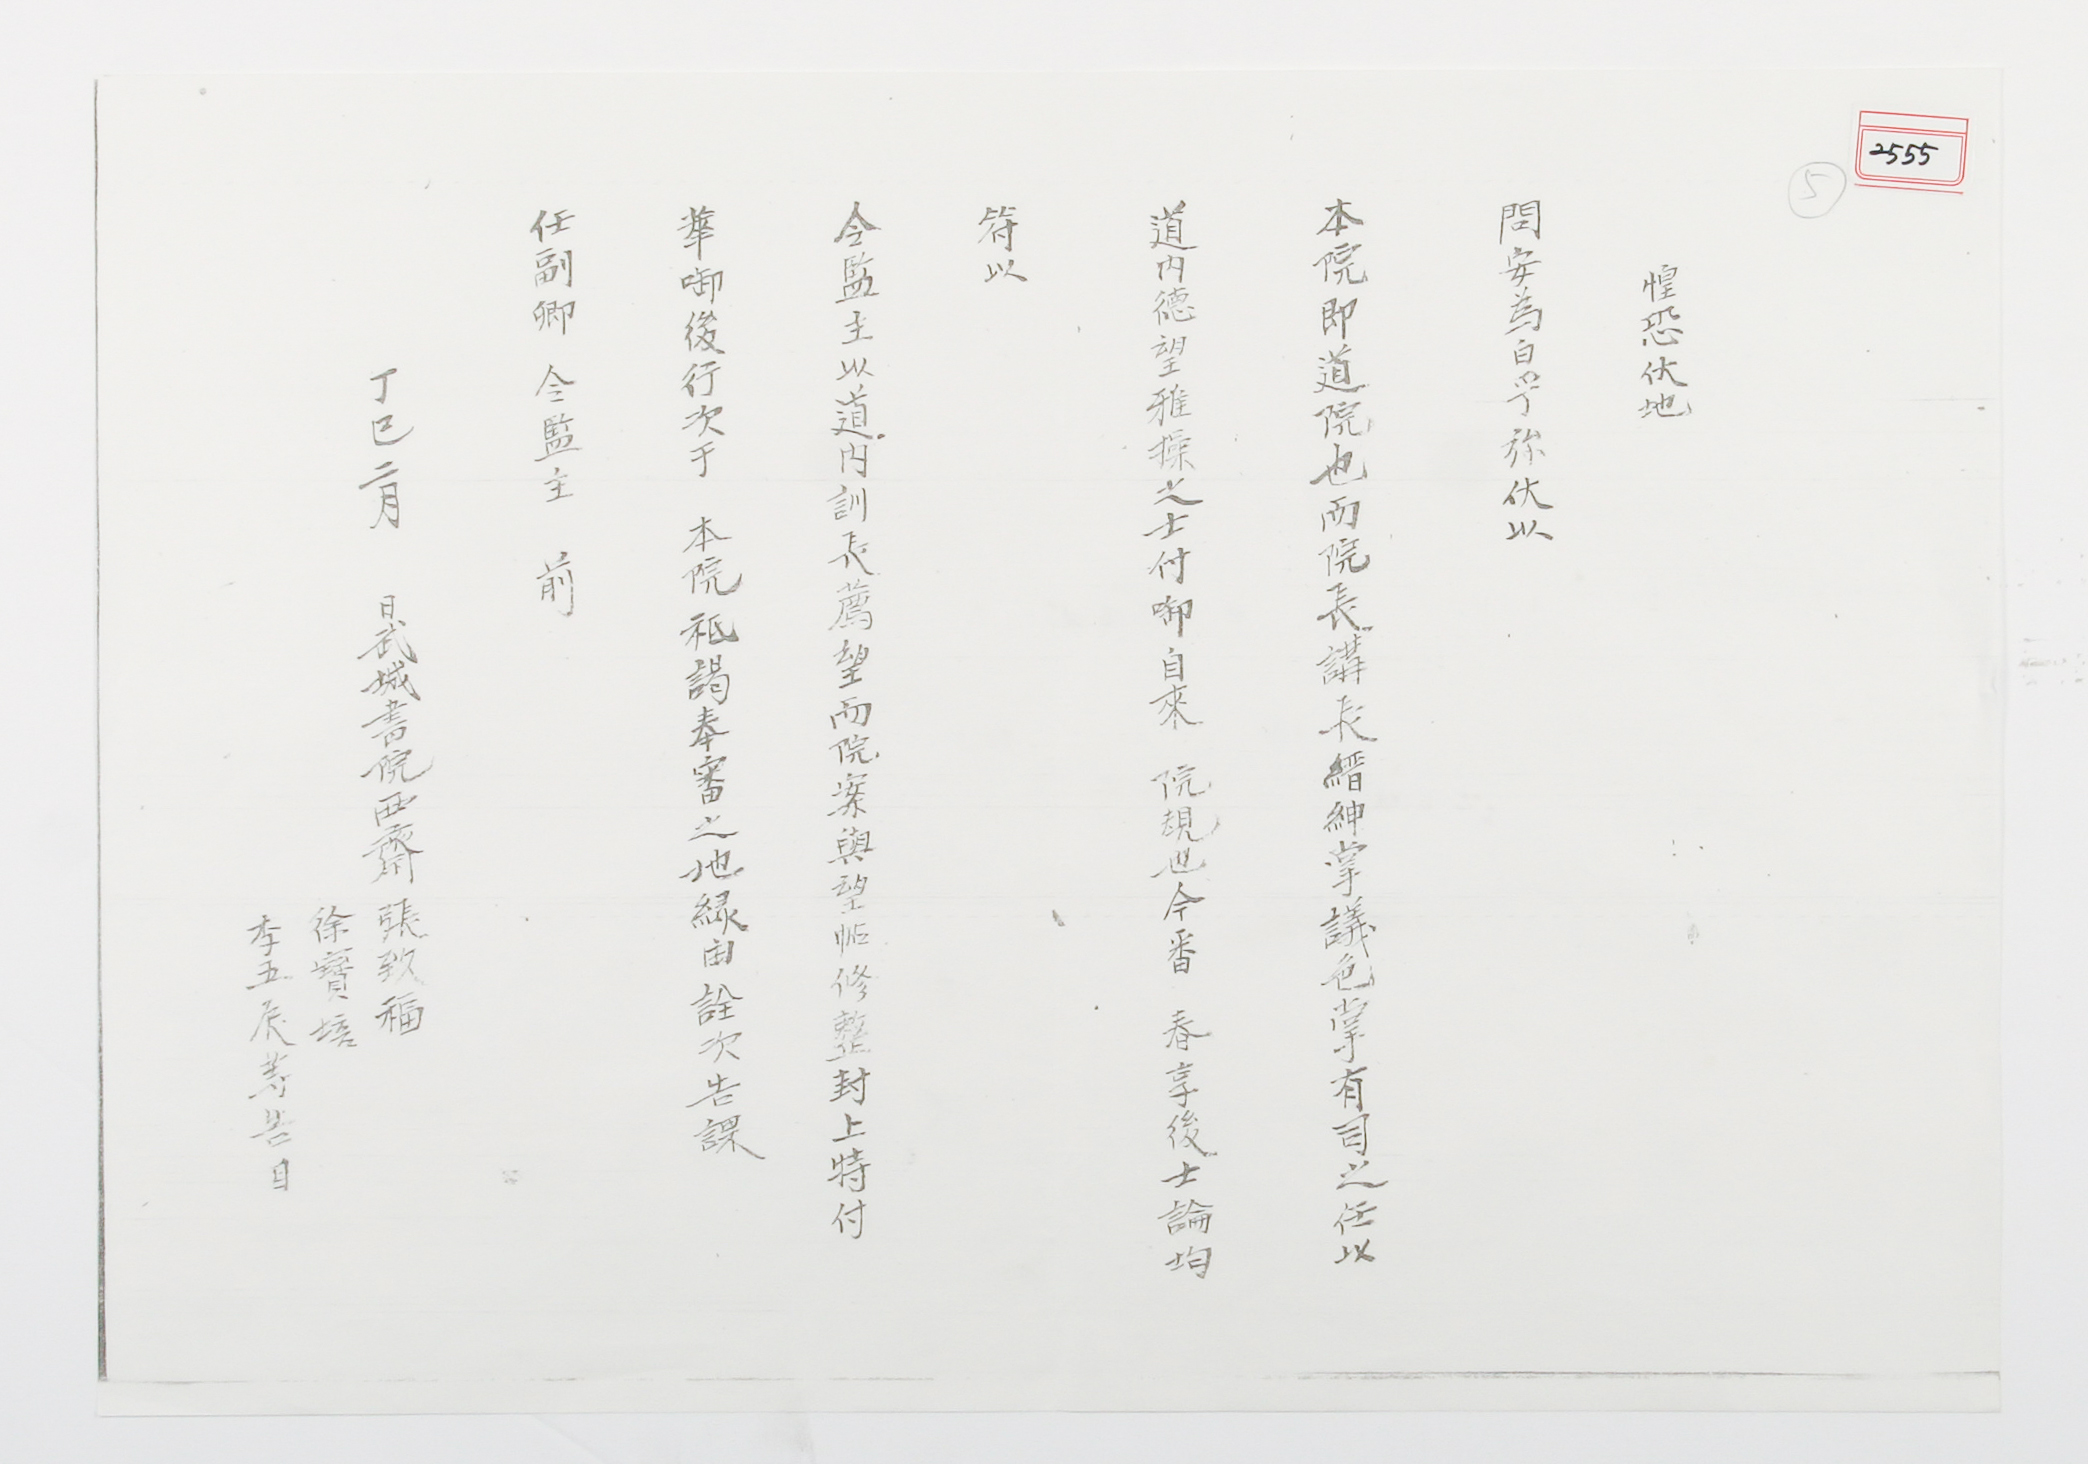 2555
5
惶恐伏地
問安爲白乎旀伏以
本院即道院也而院長講長縉紳掌議色掌有司之任以
道內德望雅操之士付啣自來 院規也今番 春享後士論均
符以
令監主以道內訓長薦望而院案與望帖修整封上特付
華啣後行次于 本院祗謁奉審之地緣由詮次告課
任副卿 令監主 前
丁巳二月 日武城書院西齋張致福
徐寶培
李五辰等告目